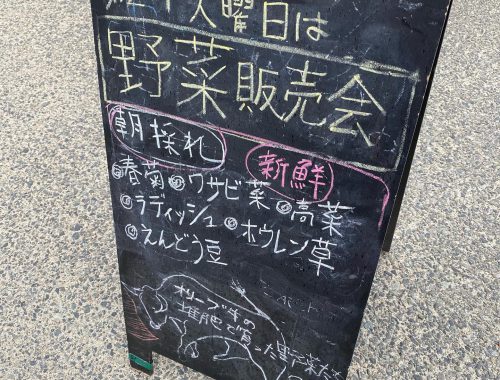 火曜日は
野菜販売会
朝採れ 新鮮
◎春菊◎ワサビ菜◎高菜
◎ラディッシュ◎ホウレン草
◎えんどう豆
オリーブ牛の
堆肥で育った野菜たち